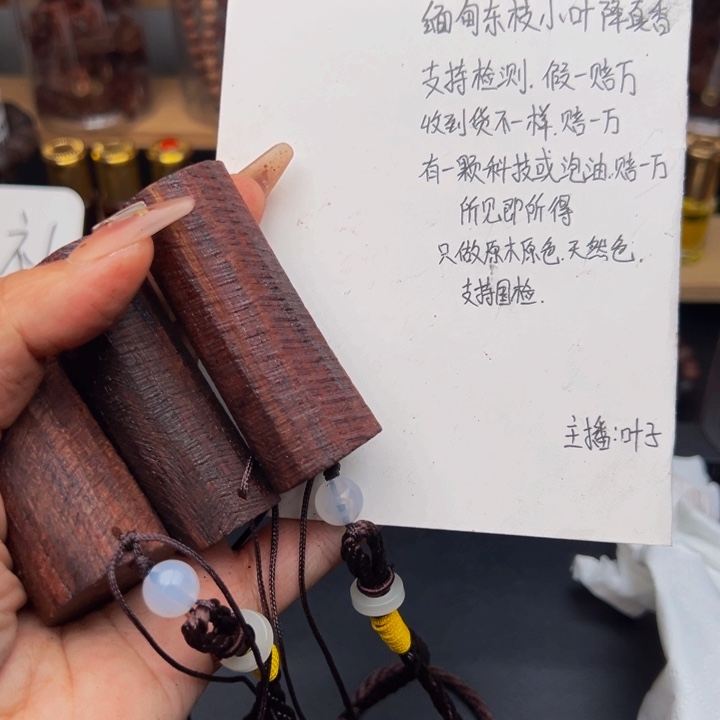 缅甸东枝小叶降真香
支持检测.假一赔万
收到货不一样.赔一万
有一颗科技或泡油.赔一万
所见即所得
只做原木原色.天然色.
支持国检.
主播:叶子
礼